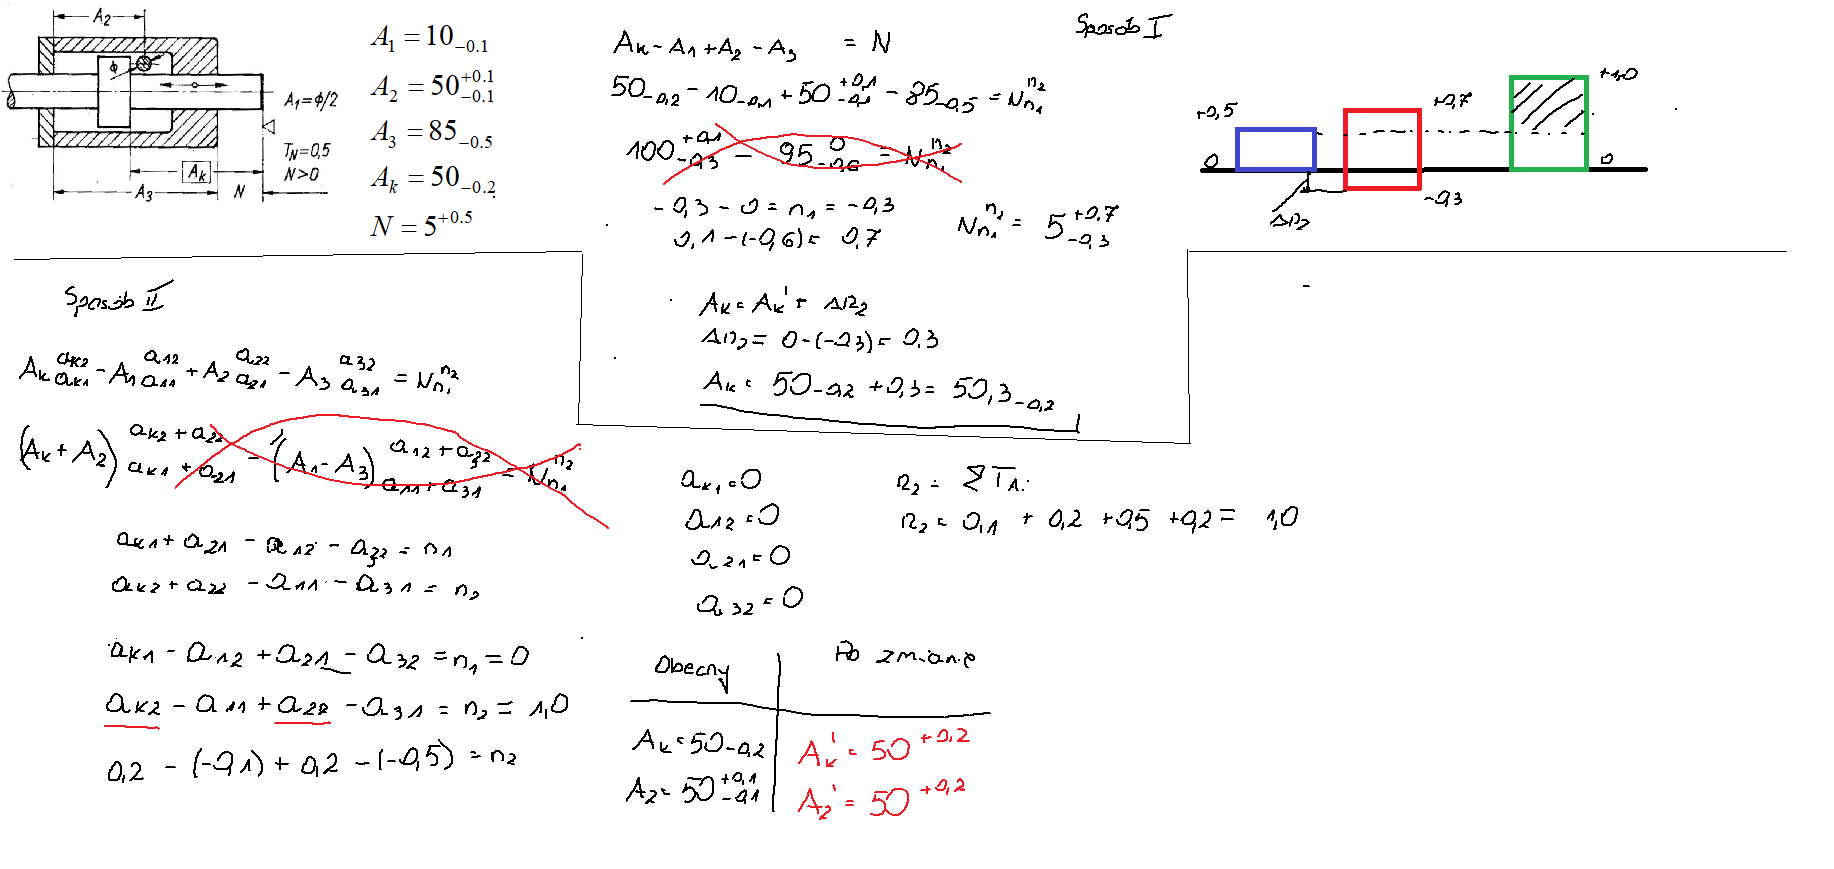 A₂
ϕ
A₁=ϕ/2
T_N=0,5
N>0
A_k
A₃
N
A₁ = 10₋₀.₁
A₂ = 50⁺⁰·¹₋₀.₁
A₃ = 85₋₀.₅
A_k = 50₋₀.₂
N = 5⁺⁰·⁵
Sposób I
A_k - A₁ + A₂ - A₃ = N
50₋₀,₂ - 10₋₀,₁ + 50⁺⁰'¹₋₀,₁ - 85₋₀,₅ = N_n₁^n₂
100⁺⁰'¹₋₀,₃ - 95⁰₋₀,₆ = N_n₁^n₂
-0,3 - 0 = n₁ = -0,3
0,1 - (-0,6) = 0,7
N_n₁^n₂ = 5⁺⁰'⁷₋₀,₃
A_k = A_k' + Δn₂
Δn₂ = 0-(-0,3) = 0,3
A_k = 50₋₀,₂ + 0,3 = 50,3₋₀,₂
+0,5
0
+0,7
-0,3
+1,0
0
Δn₂
Sposób II
A_k a_k1^a_k2 - A₁ a₁₁^a₁₂ + A₂ a₂₁^a₂₂ - A₃ a₃₁^a₃₂ = N_n₁^n₂
(A_k + A₂) a_k2 + a₂₂ a_k1 + a₂₁ - (A₁ - A₃) a₁₂ + a₃₂ a₁₁ + a₃₁ = N_n₁^n₂
a_k1 + a₂₁ - a₁₂ - a₃₂ = n₁
a_k2 + a₂₂ - a₁₁ - a₃₁ = n₂
a_k1 - a₁₂ + a₂₁ - a₃₂ = n₁ = 0
a_k2 - a₁₁ + a₂₂ - a₃₁ = n₂ = 1,0
0,2 - (-0,1) + 0,2 - (-0,5) = n₂
a_k1 = 0
a₁₂ = 0
a₂₁ = 0
a₃₂ = 0
n₂ = ΣT_Ai
n₂ = 0,1 + 0,2 + 0,5 + 0,2 = 1,0
Obecny
Po zmianie
A_k = 50₋₀,₂
A_k' = 50⁺⁰'²
A₂ = 50⁺⁰'¹₋₀,₁
A₂' = 50⁺⁰'²